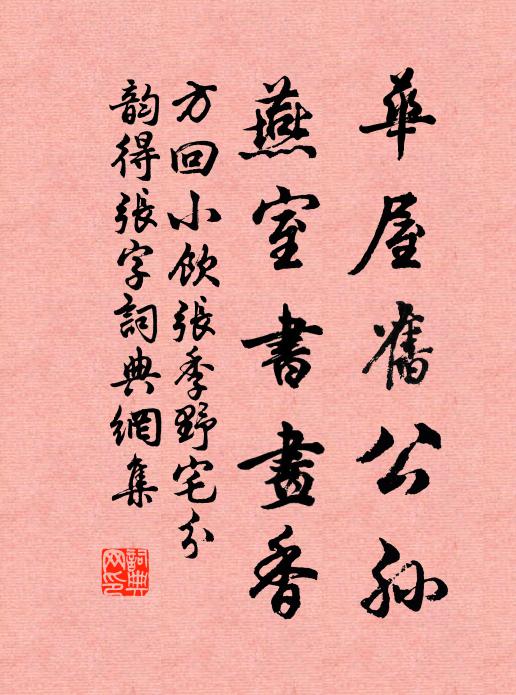 華屋舊公孫
燕室書畫香
方回小飲張季野宅分
韵得張字詞典網集
詞典
网印